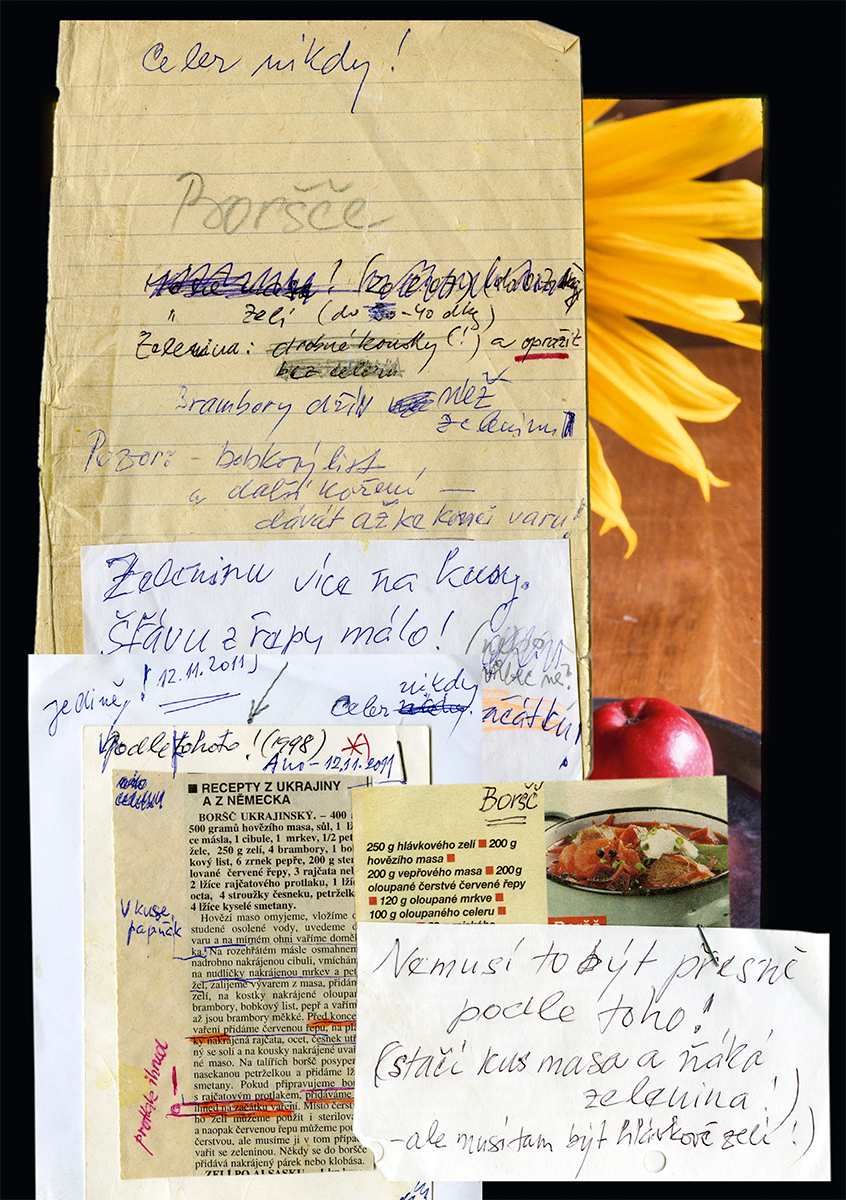 Celer nikdy!
Boršče
" zelí (do -40 dkg)
Zelenina: drobné kousky (!) a opražit
bez celeru
Brambory dřív než
zeleninu
Pozor: - bobkový list
a další koření —
dávát až ke konci varu!
Zeleninu více na kusy.
Šťávu z řapy málo!
vůbec ne?
jedině! 12.11.2011
Celer nikdy.
začátku!
Podle tohoto! (1998) *)
Ano - 12.11.2011
■ RECEPTY Z UKRAJINY
A Z NĚMECKA
BORŠČ UKRAJINSKÝ. – 400 a
500 gramů hovězího masa, sůl, 1 lž
ce másla, 1 cibule, 1 mrkev, 1/2 pet
žele, 250 g zelí, 4 brambory, 1 bo
kový list, 6 zrnek pepře, 200 g ster
lované červené řepy, 3 rajčata neb
2 lžíce rajčatového protlaku, 1 lžíc
octa, 4 stroužky česneku, petrželk
4 lžíce kyselé smetany.
Hovězí maso omyjeme, vložíme d
studené osolené vody, uvedeme d
varu a na mírném ohni vaříme doměk
ka. Na rozehřátém másle osmahnem
nadrobno nakrájenou cibuli, vmíchám
na nudličky nakrájenou mrkev a pet
žel, zalijeme vývarem z masa, přidám
zelí, na kostky nakrájené oloupa
brambory, bobkový list, pepř a vařím
až jsou brambory měkké. Před konce
vaření přidáme červenou řepu, na plá
ky nakrájená rajčata, ocet, česnek utř
ný se solí a na kousky nakrájené uvař
né maso. Na talířích boršč posypem
nasekanou petrželkou a přidáme lži
smetany. Pokud připravujeme bor
s rajčatovým protlakem, přidáváme
ihned na začátku vaření. Místo čerst
ho zelí můžeme použít i sterilova
a naopak červenou řepu můžeme pou
čerstvou, ale musíme ji v tom přípa
vařit se zeleninou. Někdy se do boršč
přidává nakrájený párek nebo klobása.
ZELÍ PO ALSASKU
V kuse,
papňák
protlak ihned
Boršč
250 g hlávkového zelí ■ 200 g
hovězího masa ■
200 g vepřového masa ■ 200 g
oloupané čerstvé červené řepy
■ 120 g oloupané mrkve ■
100 g oloupaného celeru ■
Boršč
Nemusí to být přesně
podle toho!
(stačí kus masa a ňáká
zelenina!)
- ale musí tam být hlávkové zelí!)